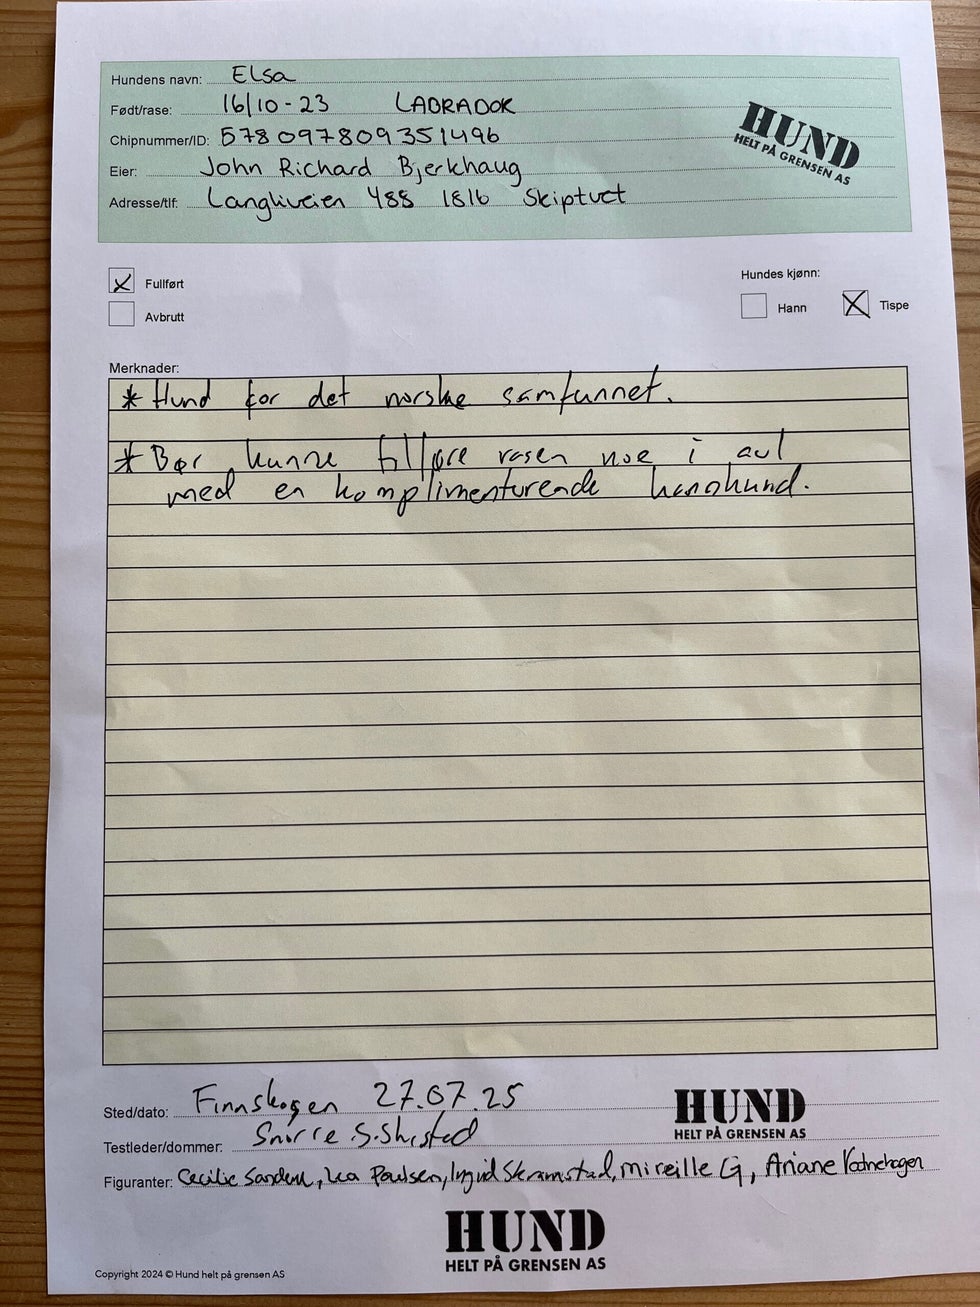 Hundens navn: Elsa
Født/rase: 16/10-23 LABRADOR
Chipnummer/ID: 578097809351496
Eier: John Richard Bjerkhaug
Adresse/tlf: Langliveien 488 1816 Skiptvet
HUND
HELT PÅ GRENSEN AS
Fullført
Avbrutt
Hundes kjønn:
Hann Tispe
Merknader:
* Hund for det norske samfunnet.
* Bør kunne tilføre rasen noe i avl
med en komplimenturende hannhund.
Sted/dato: Finnskogen 27.07.25
HUND
HELT PÅ GRENSEN AS
Testleder/dommer: Snorre S.
Figuranter: Cecilie Lea Paulsen, Ingvid Skramstad, Mireille G, Ariane
HUND
HELT PÅ GRENSEN AS
Copyright 2024 © Hund helt på grensen AS